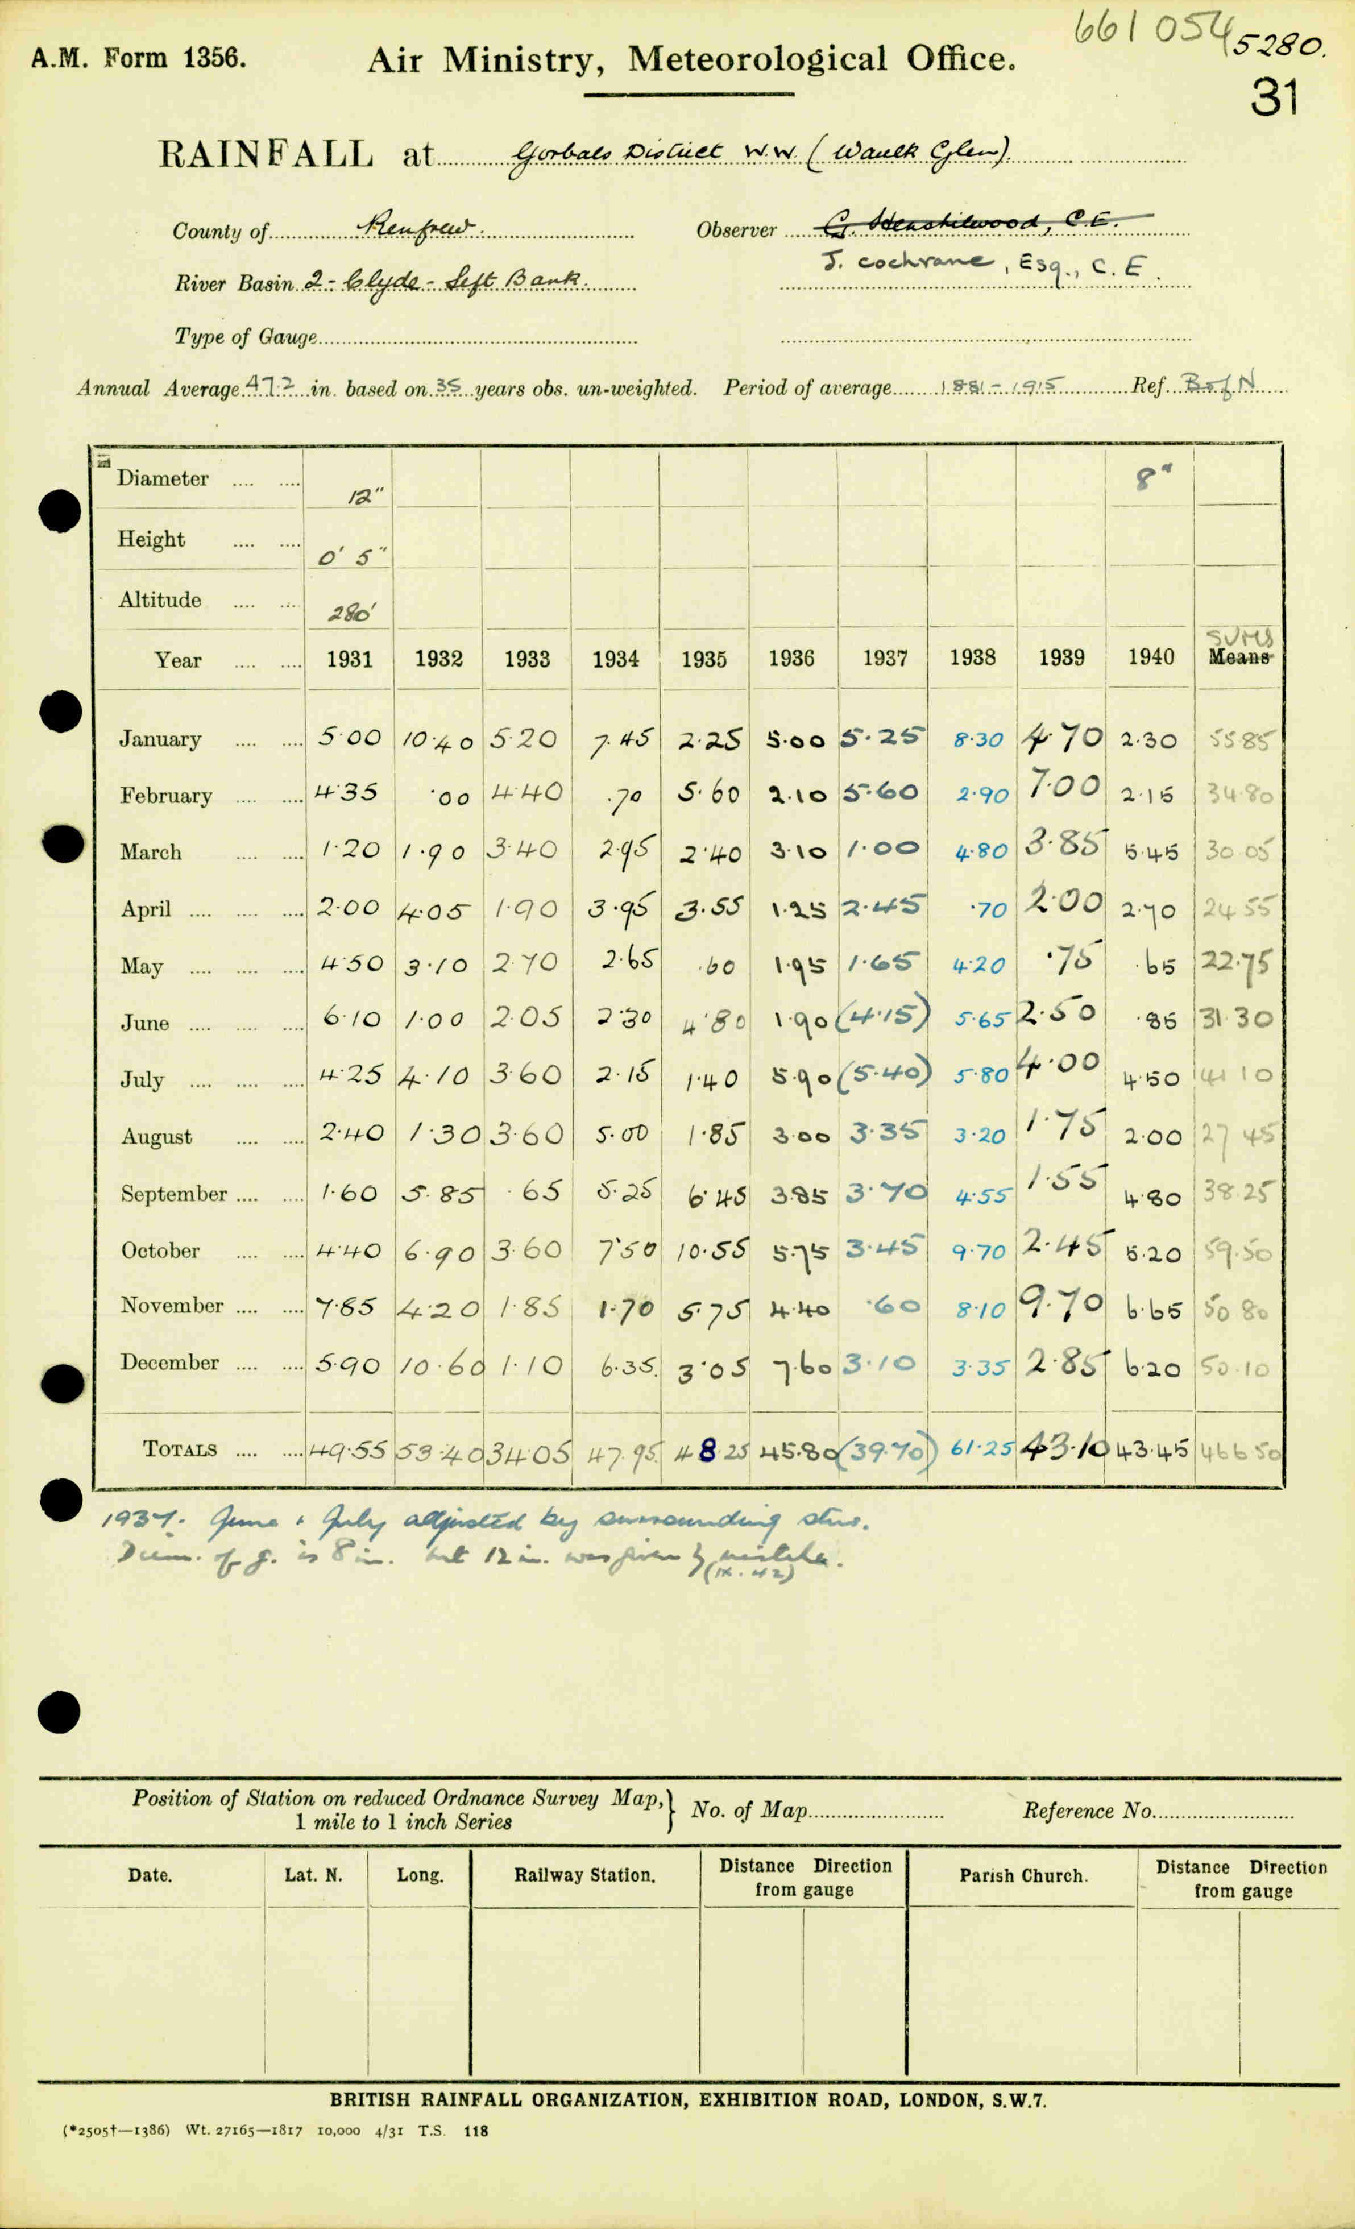 661054 5280.
A.M. Form 1356. Air Ministry, Meteorological Office.
31
RAINFALL at Gorbals District W.W. (Waulk Glen).
County of Renfrew. Observer G. Henshilwood, C.E.
J. Cochrane, Esq., C.E.
River Basin 2 - Clyde - Left Bank.
Type of Gauge
Annual Average 47.2 in. based on 35 years obs. un-weighted. Period of average 1881-1915 Ref. B of N
Diameter .... .... 12" 8"
Height .... .... 0' 5"
Altitude .... .... 280'
SUMS
Year .... .... 1931 1932 1933 1934 1935 1936 1937 1938 1939 1940 Means
January .... .... 5.00 10.40 5.20 7.45 2.25 5.00 5.25 8.30 4.70 2.30 55.85
February .... .... 4.35 .00 4.40 .70 5.60 2.10 5.60 2.90 7.00 2.15 34.80
March .... .... 1.20 1.90 3.40 2.95 2.40 3.10 1.00 4.80 3.85 5.45 30.05
April .... .... .... 2.00 4.05 1.90 3.95 3.55 1.25 2.45 .70 2.00 2.70 24.55
May .... .... .... 4.50 3.10 2.70 2.65 .60 1.95 1.65 4.20 .75 .65 22.75
June .... .... .... 6.10 1.00 2.05 2.30 4.80 1.90 (4.15) 5.65 2.50 .85 31.30
July .... .... .... 4.25 4.10 3.60 2.15 1.40 5.90 (5.40) 5.80 4.00 4.50 41.10
August .... .... 2.40 1.30 3.60 5.00 1.85 3.00 3.35 3.20 1.75 2.00 27.45
September .... .... 1.60 5.85 .65 5.25 6.45 3.85 3.70 4.55 1.55 4.80 38.25
October .... .... 4.40 6.90 3.60 7.50 10.55 5.75 3.45 9.70 2.45 5.20 59.50
November .... .... 7.85 4.20 1.85 1.70 5.75 4.40 .60 8.10 9.70 6.65 50.80
December .... .... 5.90 10.60 1.10 6.35 3.05 7.60 3.10 3.35 2.85 6.20 50.10
TOTALS .... .... 49.55 53.40 34.05 47.95 48.25 45.80 (39.70) 61.25 43.10 43.45 466.50
1937. June & July adjusted by surrounding stns.
Diam. of g. is 8 in. but 12 in. was given by mistake.
(ix.42)
Position of Station on reduced Ordnance Survey Map, } No. of Map Reference No.
1 mile to 1 inch Series
Date. Lat. N. Long. Railway Station. Distance Direction from gauge Parish Church. Distance Direction from gauge
BRITISH RAINFALL ORGANIZATION, EXHIBITION ROAD, LONDON, S.W.7.
(*2505†—1386) Wt. 27165—1817 10,000 4/31 T.S. 118